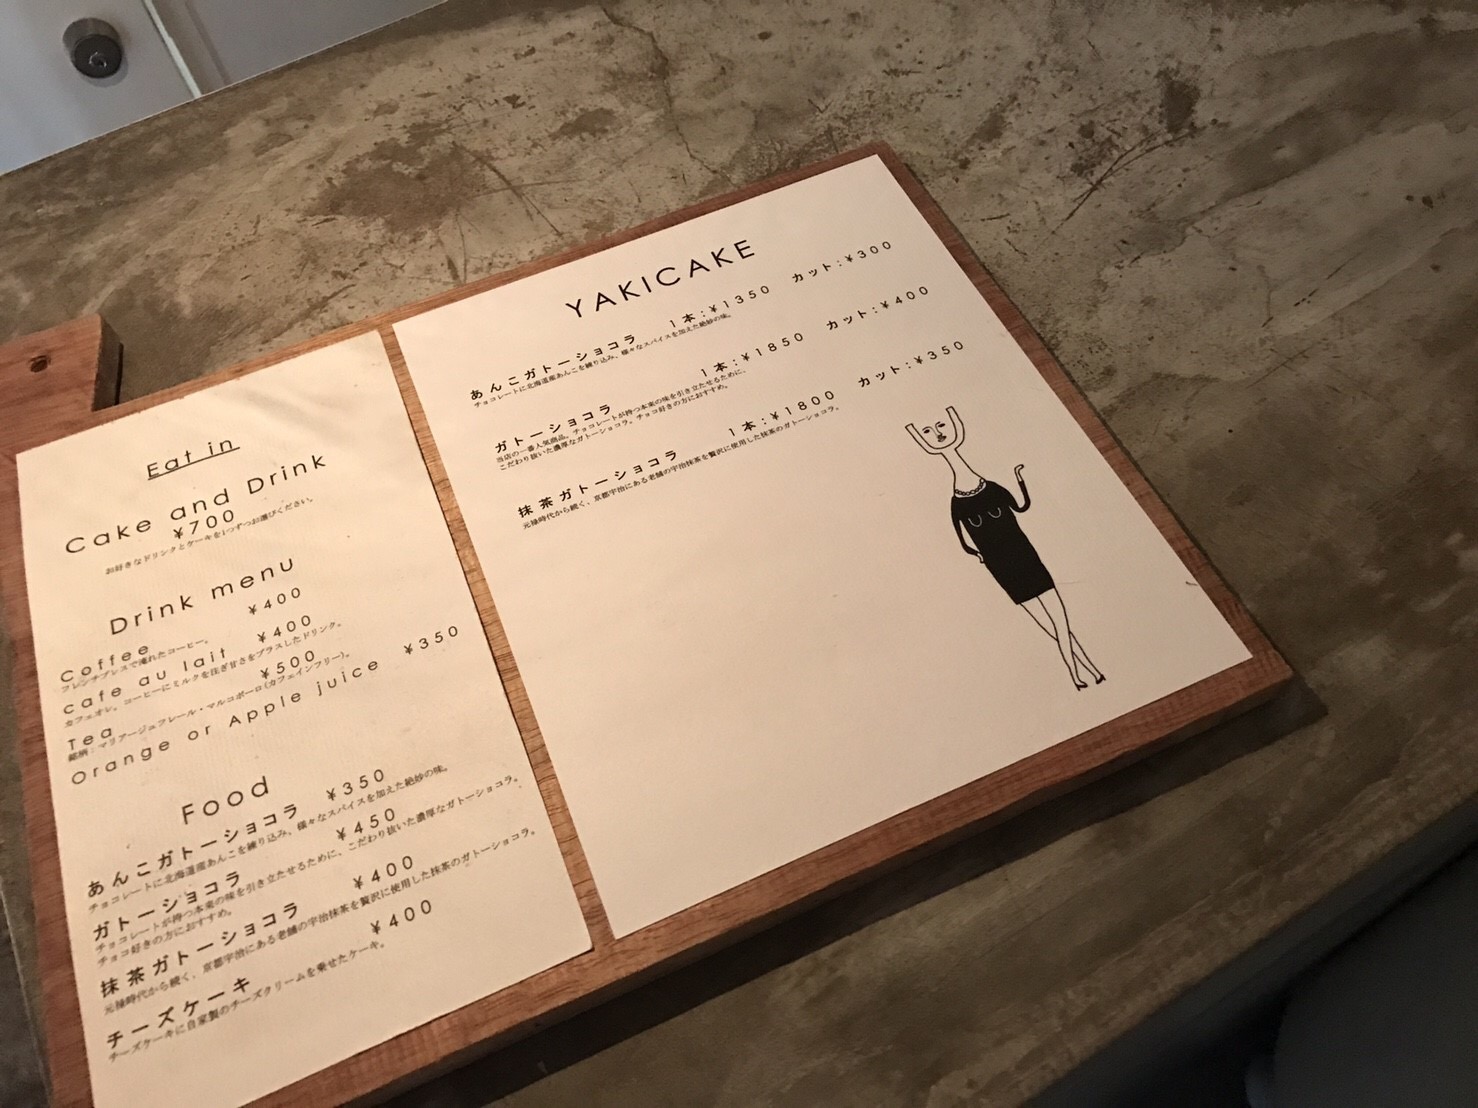 Eat in
Cake and Drink
¥700
お好きなドリンクとケーキを1つずつお選びください。
Drink menu
Coffee ¥400
フレンチプレスで淹れたコーヒー。
cafe au lait ¥400
カフェオレ。コーヒーにミルクを注ぎ甘さをプラスしたドリンク。
Tea ¥500
銘柄：マリアージュフレール・マルコポーロ(カフェインフリー)。
Orange or Apple juice ¥350
Food
あんこガトーショコラ ¥350
チョコレートに北海道産あんこを練り込み、様々なスパイスを加えた絶妙の味。
ガトーショコラ ¥450
チョコレートが持つ本来の味を引き立たせるために、こだわり抜いた濃厚なガトーショコラ。
チョコ好きの方におすすめ。
抹茶ガトーショコラ ¥400
元禄時代から続く、京都宇治にある老舗の宇治抹茶を贅沢に使用した抹茶のガトーショコラ。
チーズケーキ ¥400
チーズケーキに自家製のチーズクリームを乗せたケーキ。
YAKICAKE
あんこガトーショコラ 1本：¥1350 カット：¥300
チョコレートに北海道産あんこを練り込み、様々なスパイスを加えた絶妙の味。
ガトーショコラ 1本：¥1850 カット：¥400
当店の一番人気商品。チョコレートが持つ本来の味を引き立たせるために、
こだわり抜いた濃厚なガトーショコラ。チョコ好きの方におすすめ。
抹茶ガトーショコラ 1本：¥1800 カット：¥350
元禄時代から続く、京都宇治にある老舗の宇治抹茶を贅沢に使用した抹茶のガトーショコラ。